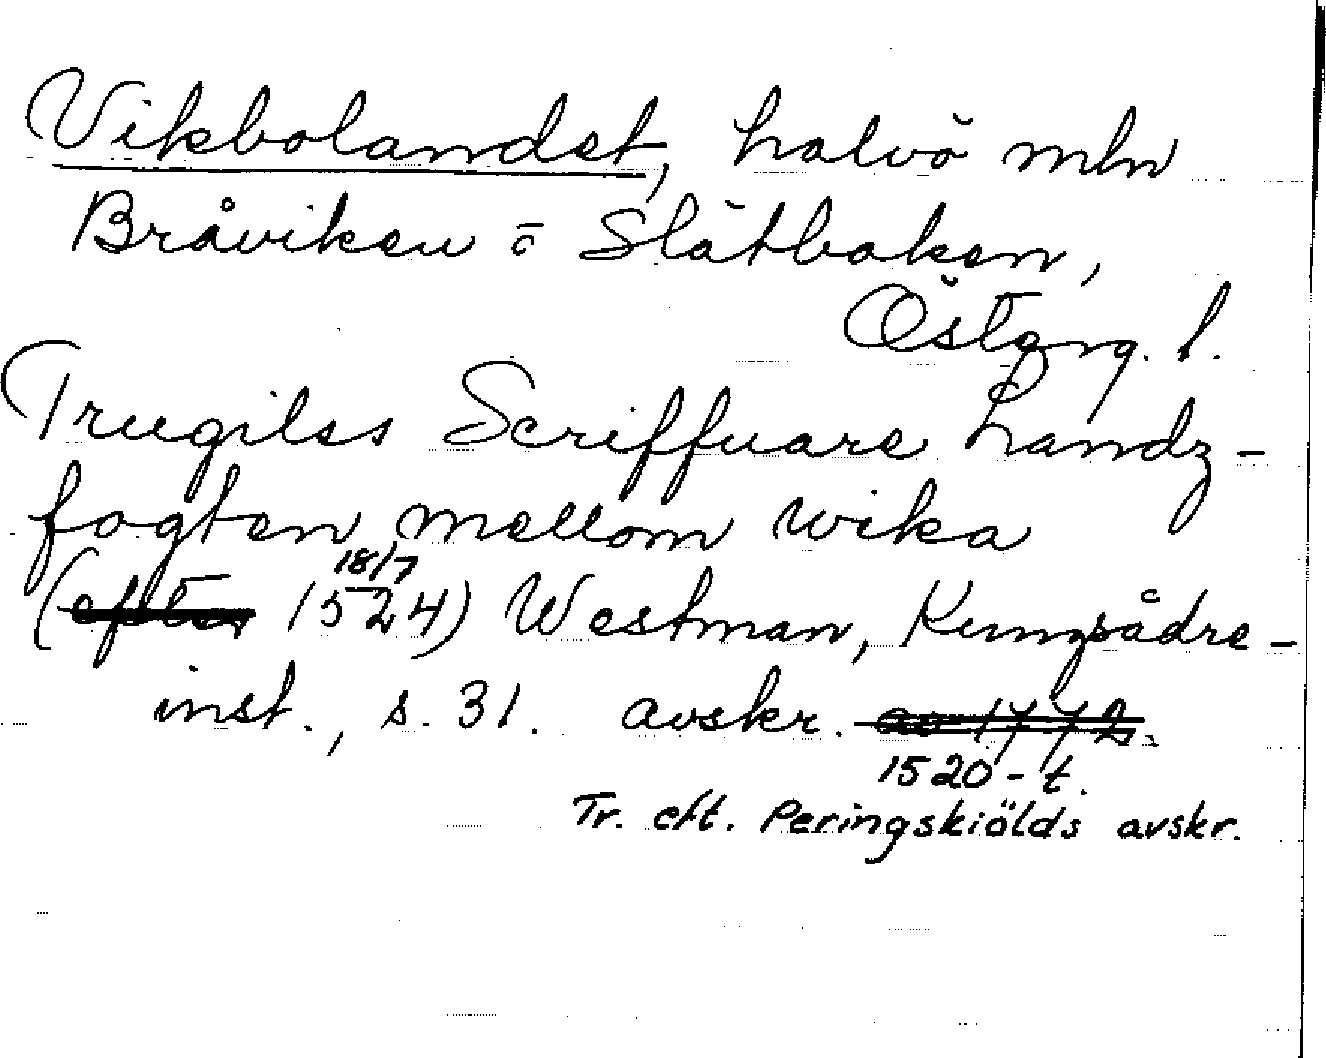 Vikbolandet, halvö mln
Bråviken o Slätbaken,
Österg. l.
Truegilss Scriffuare Landz-
fogten mellom wika
18/7
(efter 1524) Westman, Kungsådre-
inst., s. 31. avskr. av 1772.
1520-t.
Tr. eft. Peringskiölds avskr.